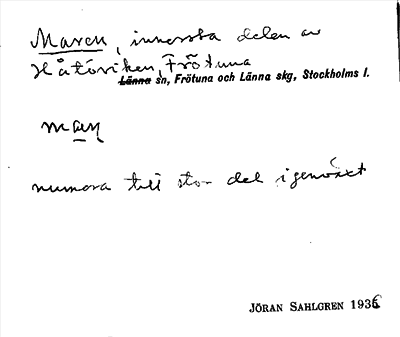 Maren, innersta delen av
Håtöviken, Frötuna
Länna sn, Frötuna och Länna skg, Stockholms l.
maṟṉ
numera till stor del igenväxt
JÖRAN SAHLGREN 1936